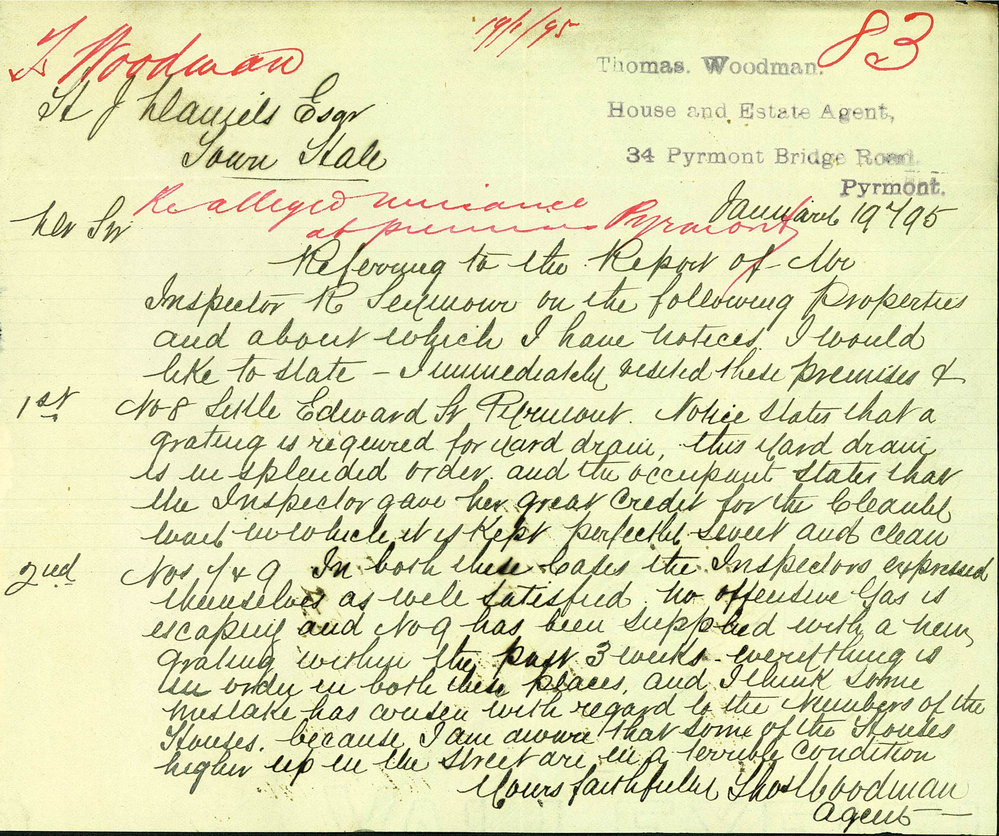 Ts Woodman
19/1/95
83
Thomas. Woodman.
House and Estate Agent,
34 Pyrmont Bridge Road.
Pyrmont.
H J Daniels Esqr
Town Hall
January 19th/95
Re alleged nuisance
at premises Pyrmont
Dr Sir
Referring to the Report of Mr
Inspector R Seymour on the following Properties
and about which I have notices, I would
like to state – I immediately visited these premises &
1st No 8 Little Edward St Pyrmont. Notice states that a
grating is required for yard drain, this yard drain
is in splendid order and the occupant states that
the Inspector gave her great Credit for the Cleanly
way in which it is Kept perfectly sweet and clean
2nd Nos 7 & 9 In both these Cases the Inspectors expressed
themselves as well satisfied, no offensive Gas is
escaping and No 9 has been supplied with a new
grating within the past 3 weeks. everything is
in order in both these places, and I think some
mistake has arisen with regard to the Numbers of the
Houses. because I am aware that some of the Houses
higher up in the street are in a terrible condition
Yours faithfully Thos Woodman
Agent